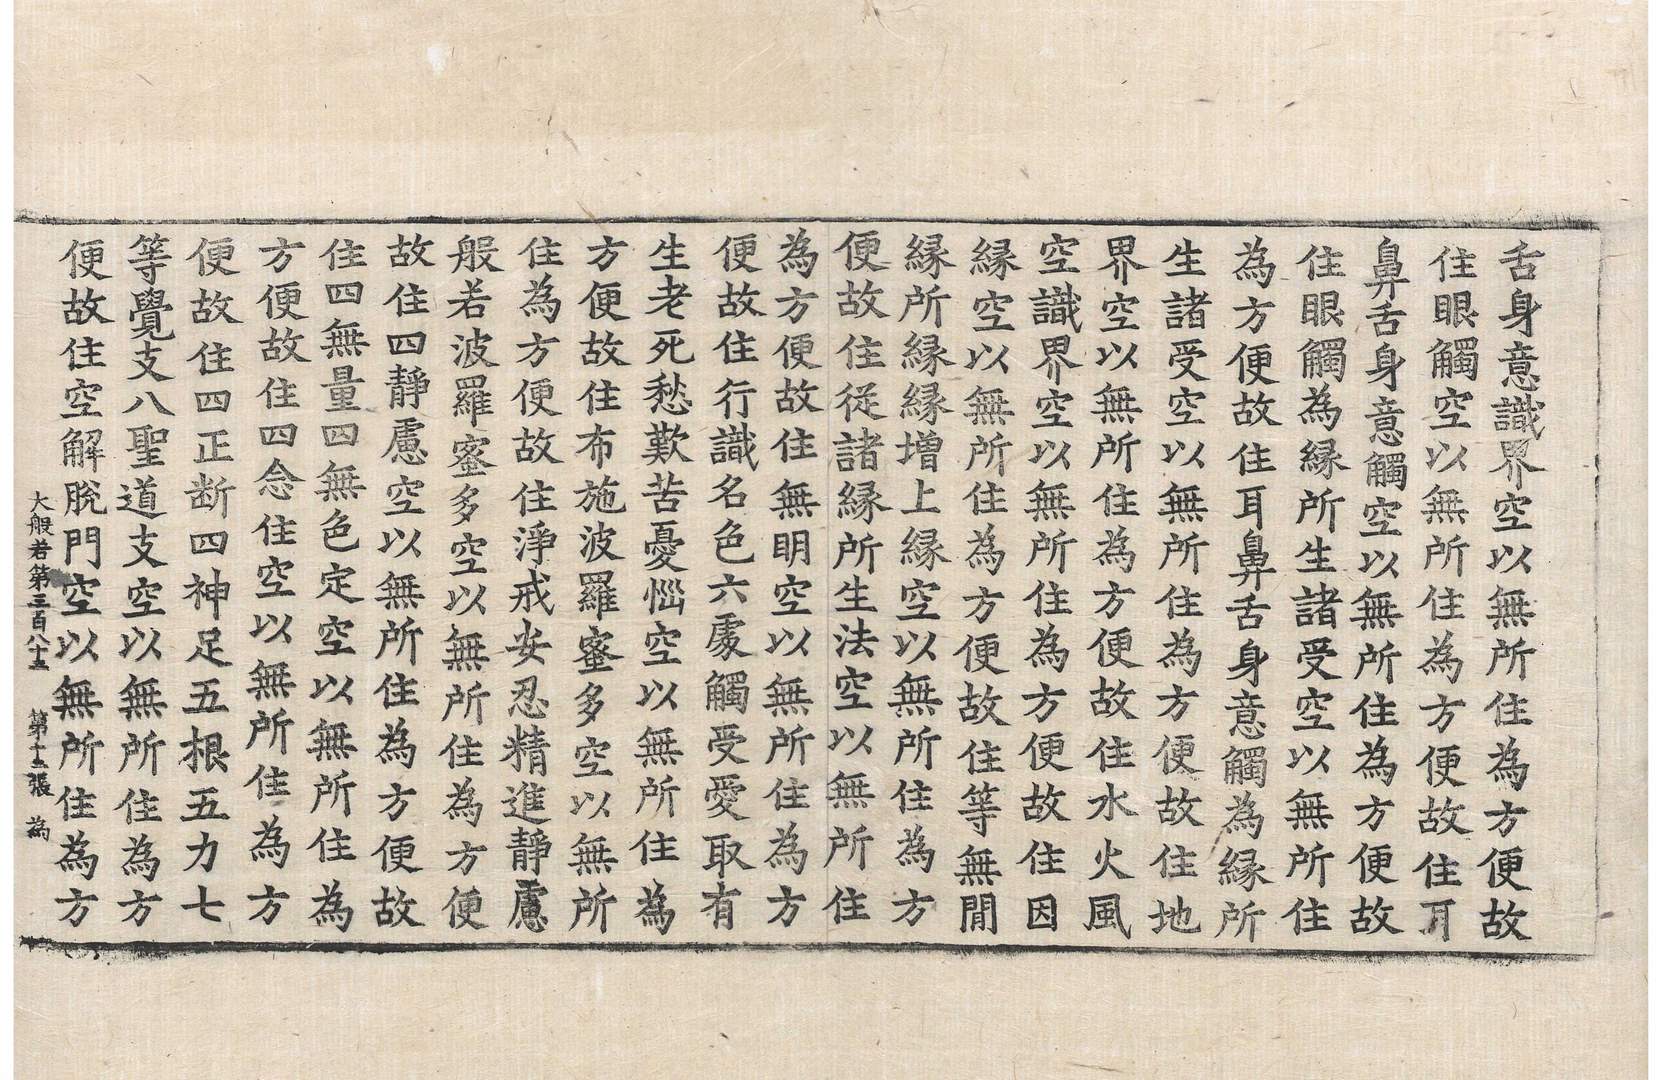 舌身意識界空以無所住為方便故
住眼觸空以無所住為方便故住耳
鼻舌身意觸空以無所住為方便故
住眼觸為縁所生諸受空以無所住
為方便故住耳鼻舌身意觸為縁所
生諸受空以無所住為方便故住地
界空以無所住為方便故住水火風
空識界空以無所住為方便故住因
縁空以無所住為方便故住等無間
縁所縁縁增上縁空以無所住為方
便故住從諸縁所生法空以無所住
為方便故住無明空以無所住為方
便故住行識名色六處觸受愛取有
生老死愁歎苦憂惱空以無所住為
方便故住布施波羅蜜多空以無所
住為方便故住淨戒安忍精進靜慮
般若波羅蜜多空以無所住為方便
故住四靜慮空以無所住為方便故
住四無量四無色定空以無所住為
方便故住四念住空以無所住為方
便故住四正断四神足五根五力七
等覺支八聖道支空以無所住為方
便故住空解脫門空以無所住為方
大般若第三百八十五 第十五張 為